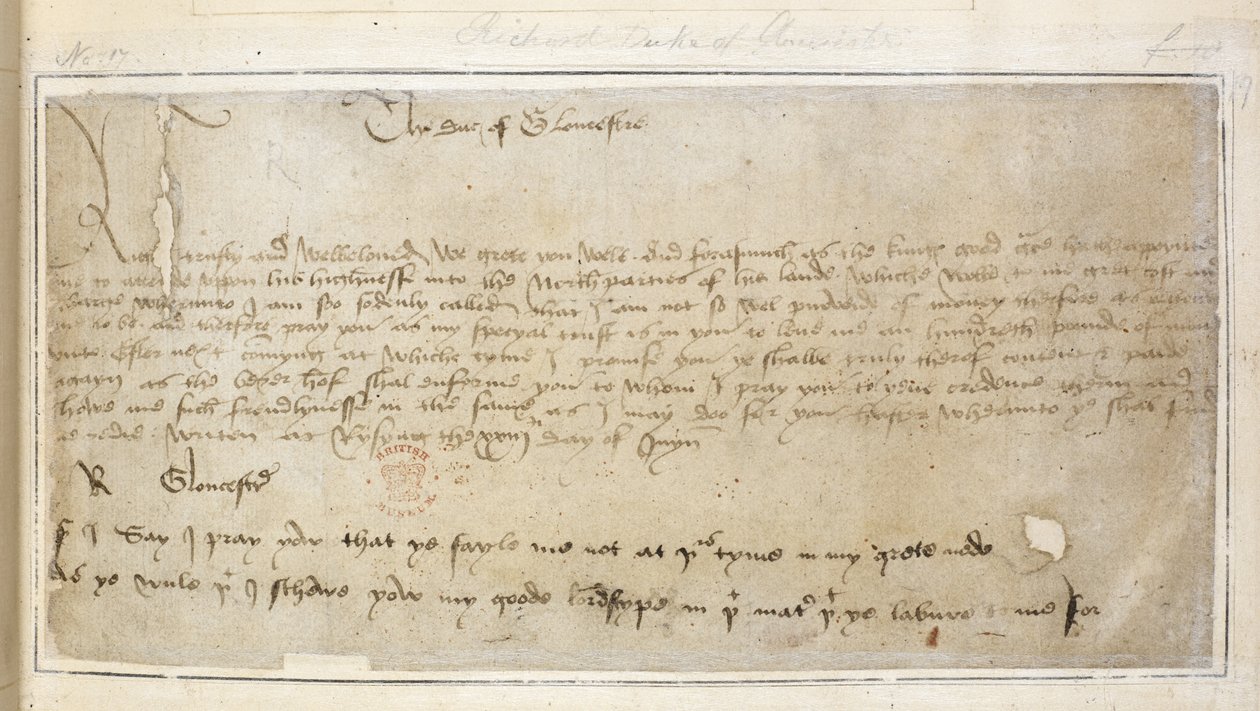 Richard Duke of Gloucester
No. 17.
The duc of Gloucestre
Right trusty and welbeloved We grete you wele And forasmuch as the kings good grace hathe appoynted
me to attende vpon his highnesse into the North parties of his lande whiche wolbe to me gret cost and
charge whervnto I am soo sodenly called that I am not so wel purveide of money therfore as behoves
me to be and therfore pray you as my specyal trust is in you to lend me an hundreth pounde of money
vnto Ester next comyng at whiche tyme I promise you ye shalbe truly therof content & paide
agayn as the berer herof shal enforme you to whom I pray you to yeve credence therin and
showe me such frendlynesse in the same as I may doo for you herafter whervnto ye shal find
me redie Writen at Rysyng the xxiiijth day of Juyn
R Gloucestr
S I Say I pray yow that ye fayle me not at þis tyme in my grete nede
As ye wule þt I schewe yow my goode lordshype in þt mater þt ye labure to me for
BRITISH
MUSEUM